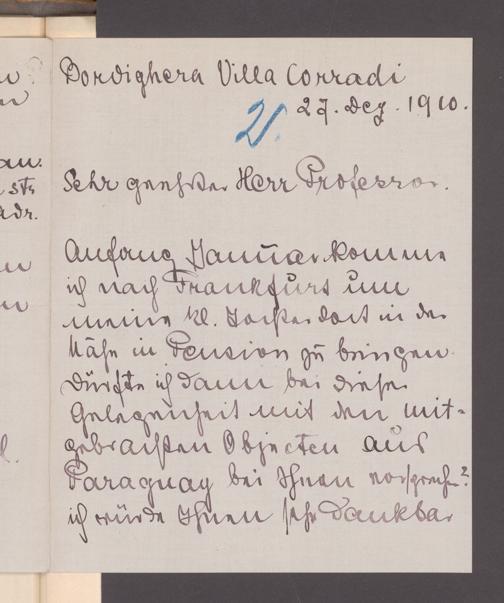 Bordighera Villa Corradi
27. Dez. 1910.
Sehr geehrter Herr Professor.
Anfang Januar komme
ich nach Frankfurt um
meine kl. Tochter dort in der
Nähe in Pension zu bringen.
Dürfte ich dann bei dieser
Gelegenheit mit den mit-
gebrachten Objecten aus
Paraguay bei Ihnen vorsprechen?
ich würde Ihnen sehr dankbar